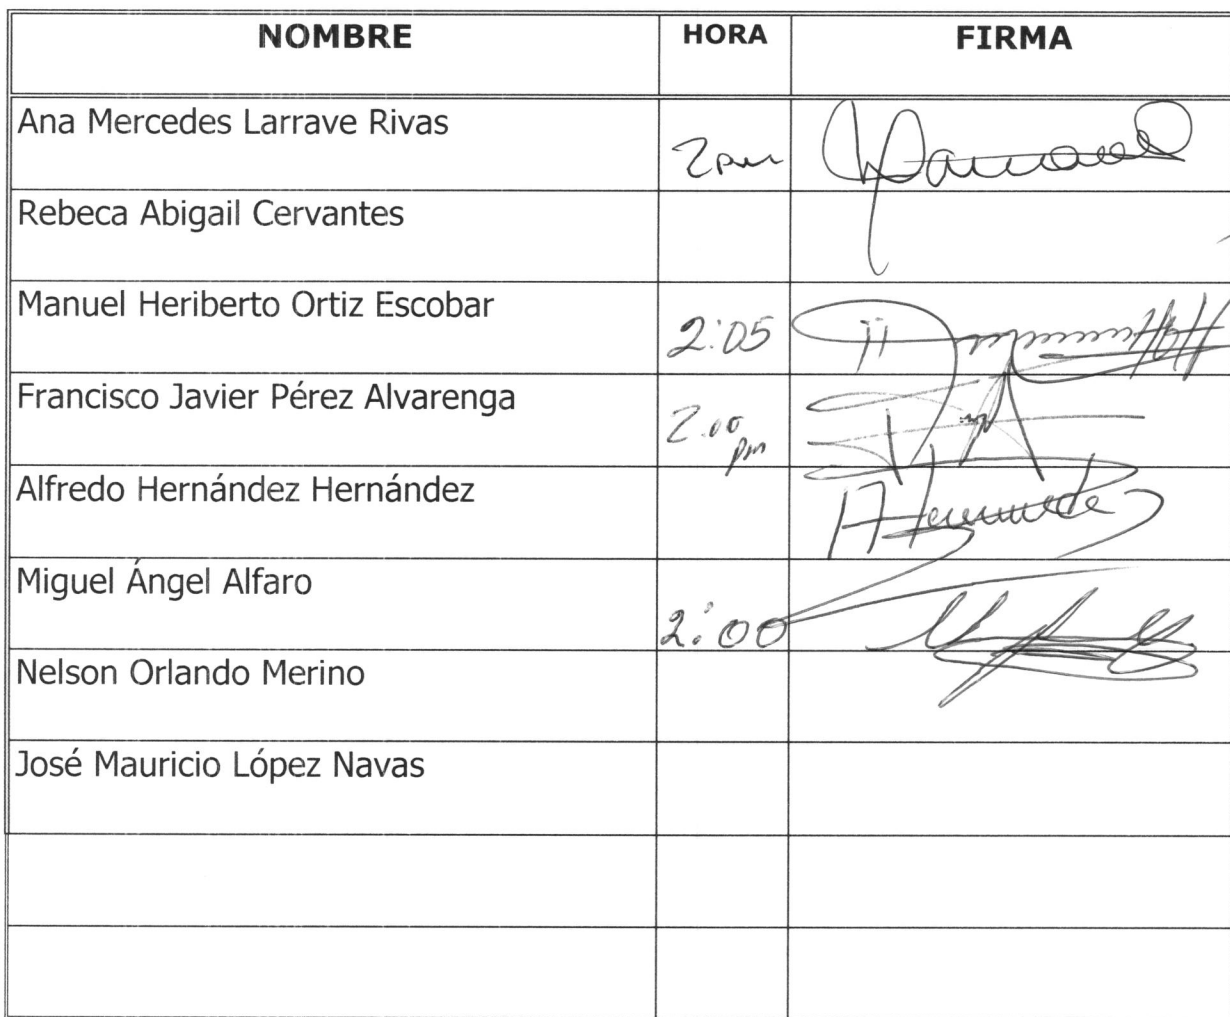 NOMBRE HORA FIRMA
Ana Mercedes Larrave Rivas
2pm
Rebeca Abigail Cervantes
Manuel Heriberto Ortiz Escobar
2:05
Francisco Javier Pérez Alvarenga
2.00
pm
Alfredo Hernández Hernández
Miguel Ángel Alfaro
2:00
Nelson Orlando Merino
José Mauricio López Navas